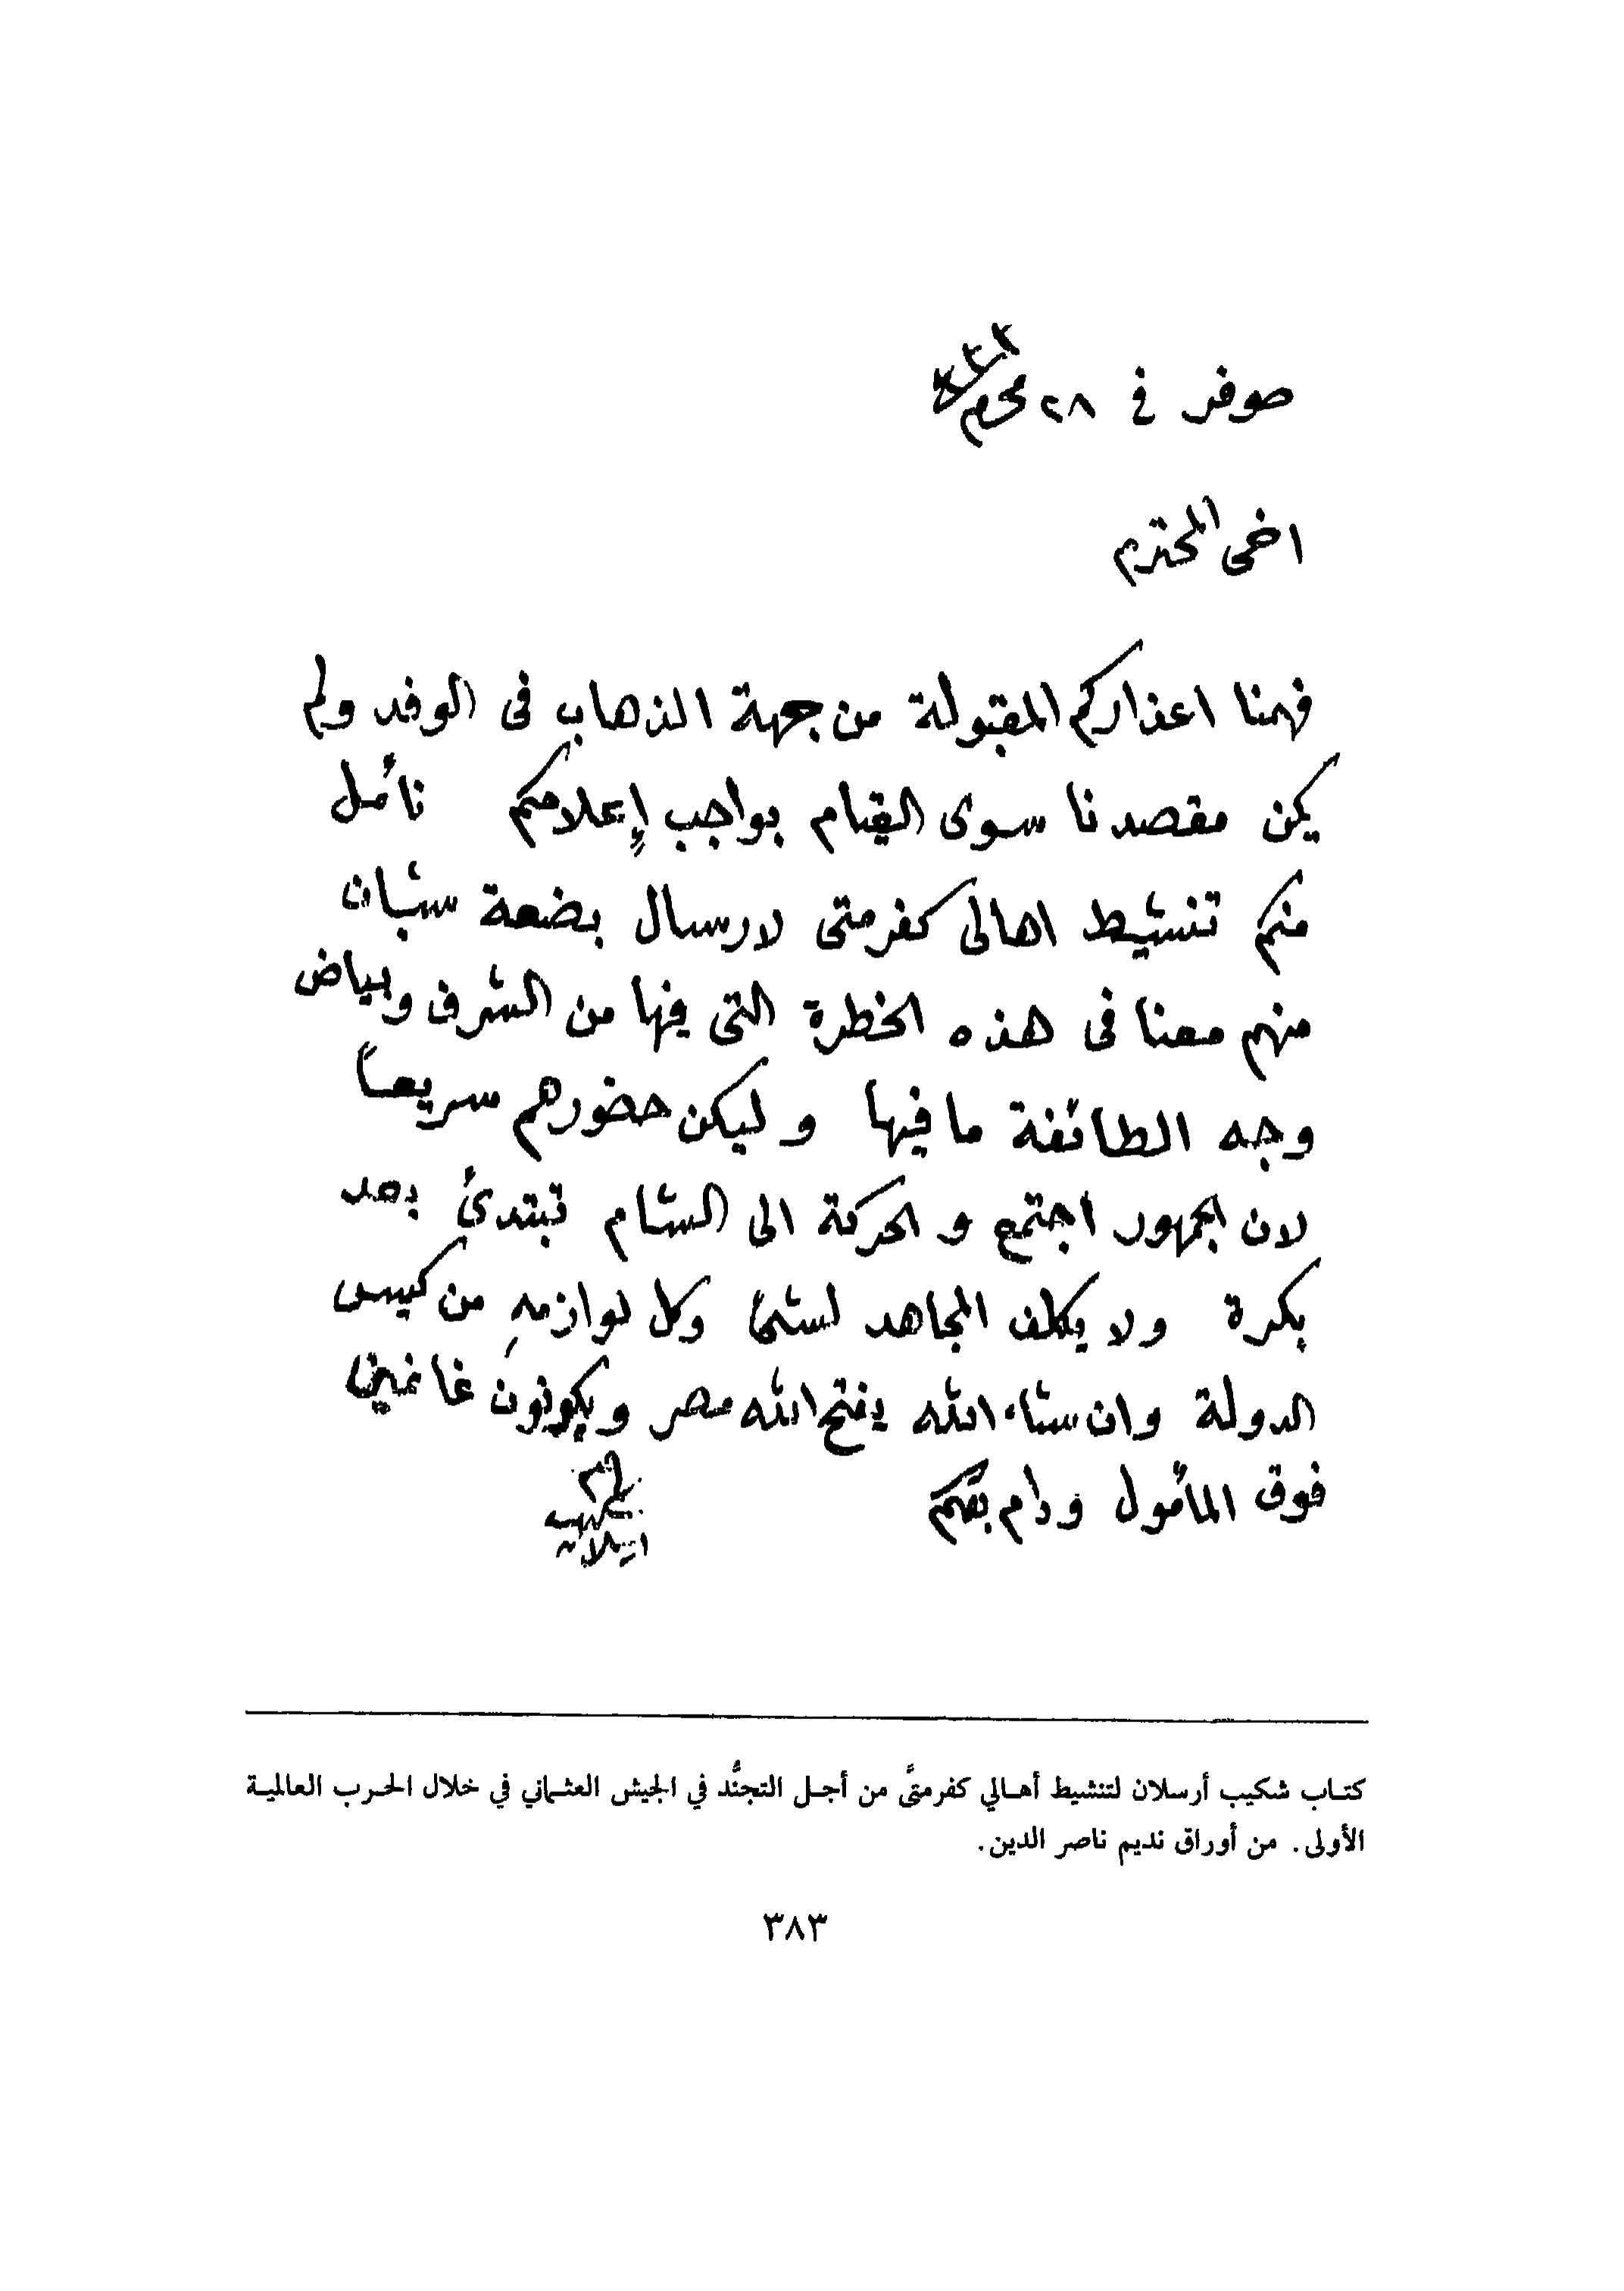 صوفر في ٢٨ محرم ٣٣٣
اخى المحترم
فهمنا اعذاركم المقبولة من جهة الذهاب فى الوفد ولم
يكن مقصدنا سوى القيام بواجب إعلامكم نأمل
منكم تنشيط اهالى كفرمتى لارسال بضعة شبان
منهم معنا فى هذه الخطرة التى فيها من الشرف وبياض
وجه الطائفة ما فيها وليكن حضورهم سريعاً
لان الجمهور اجتمع والحركة الى الشام تبتدئ بعد
بكرة ولا يكلف المجاهد لشئ وكل لوازمهِ من كيس
الدولة وان شاء الله يفتح الله مصر ويكونون غانمين
فوق المأمول ودام بقكم
شكيب
ارسلان
كتاب شكيب أرسلان لتنشيط أهالي كفرمتَّى من أجل التجنُّد في الجيش العثماني في خلال الحرب العالمية
الأولى. من أوراق نديم ناصر الدين.
٣٨٣